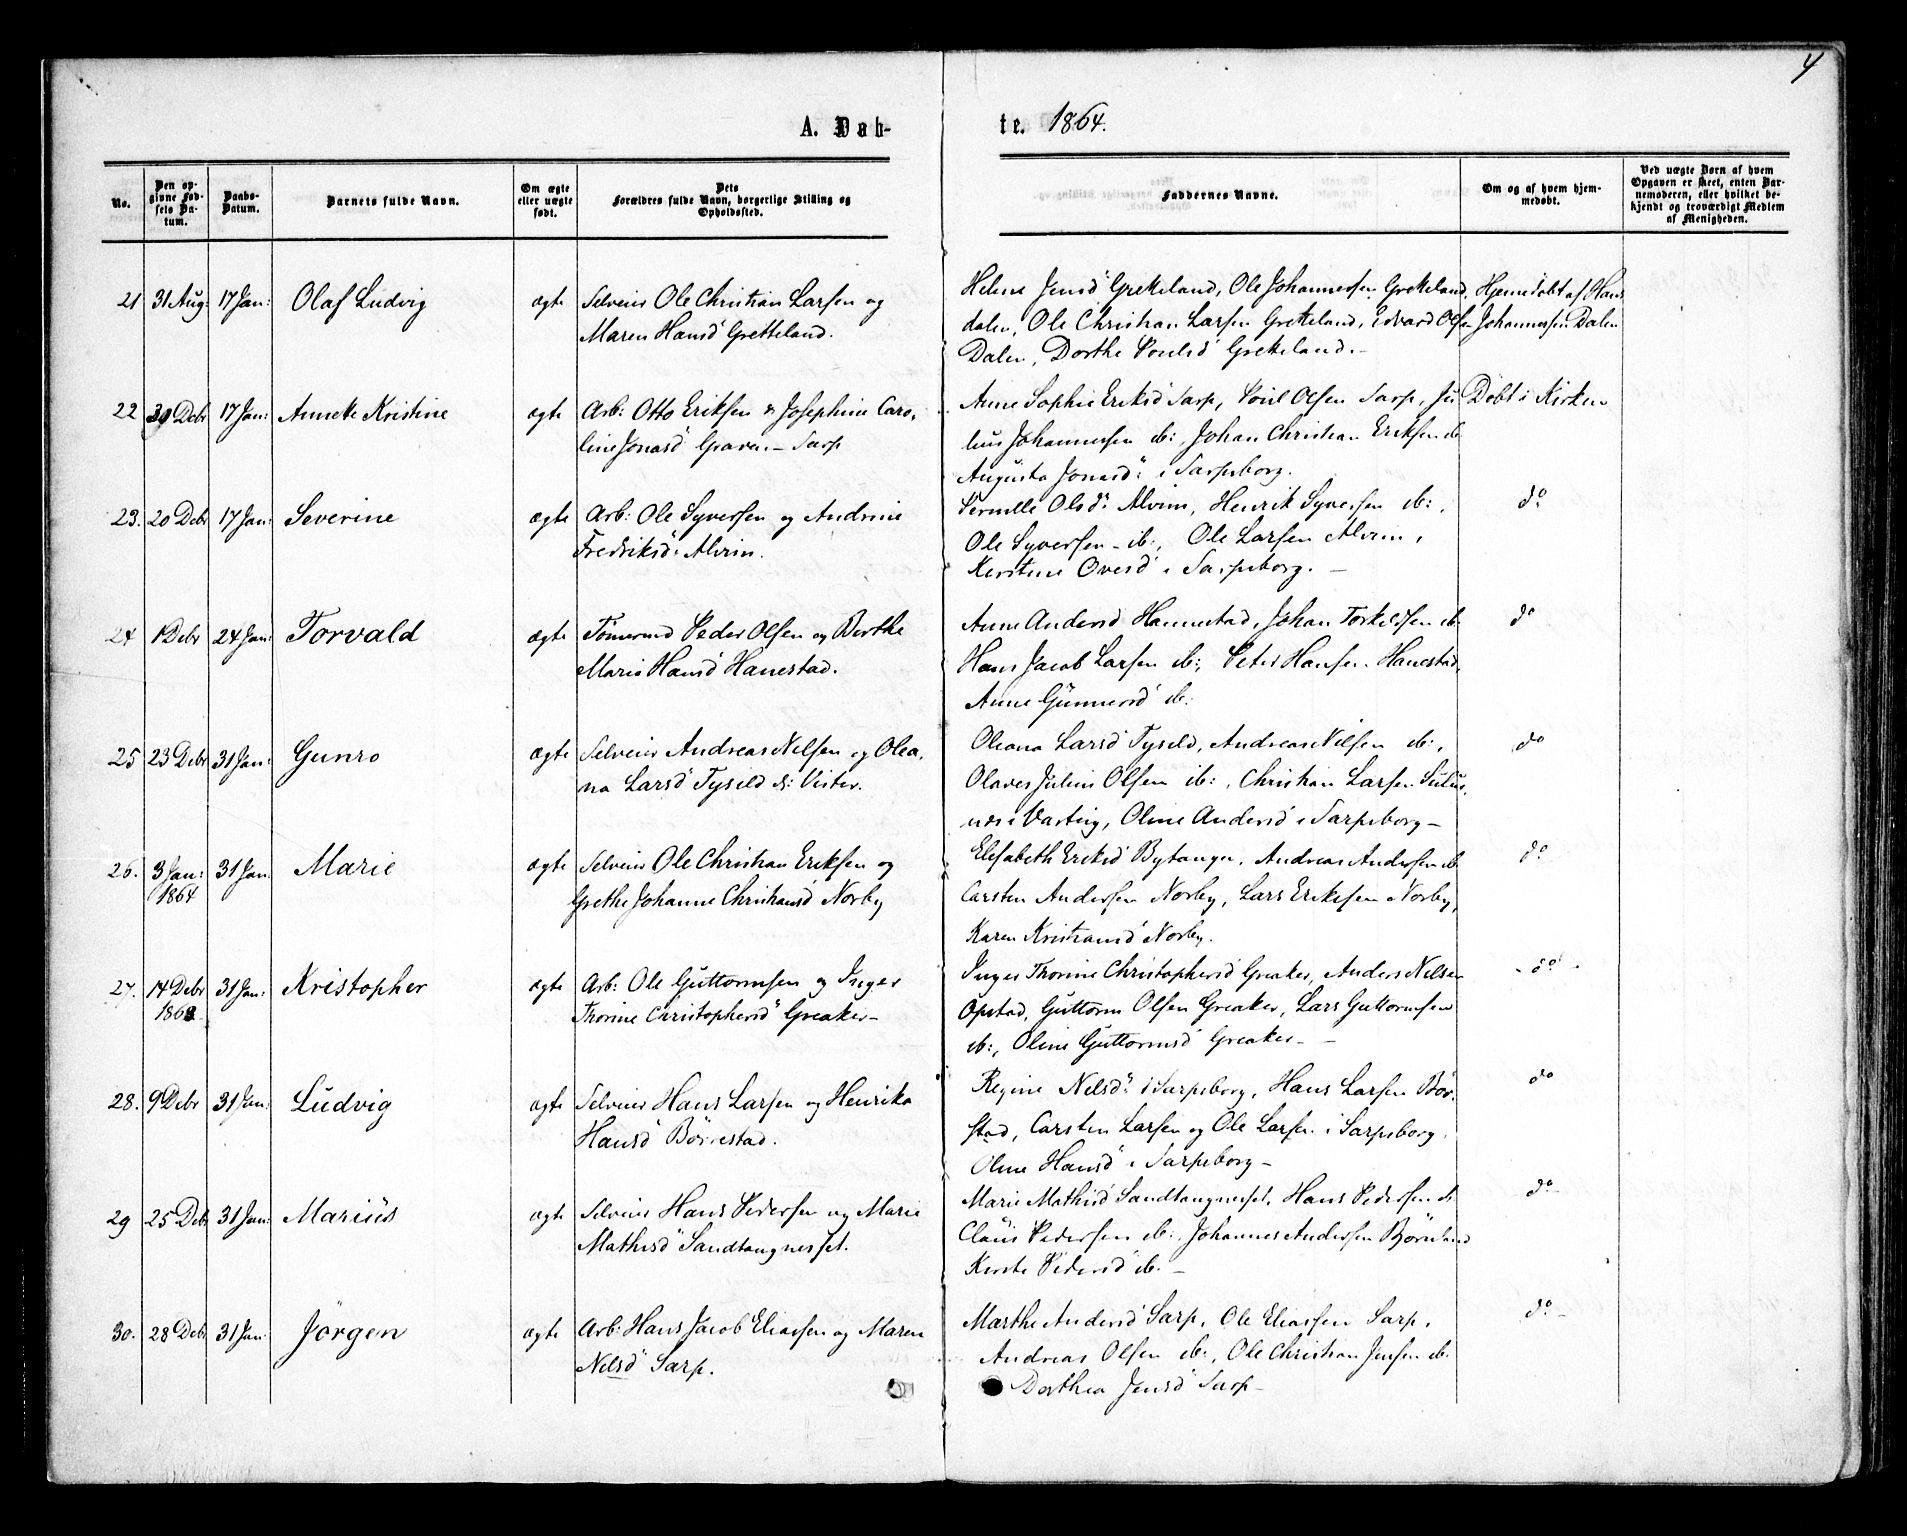 4
A. Døb-
te. 1864.
No.
Den op-
givne Fød-
sels Da-
tum.
Daabs-
Datum.
Barnets fulde Navn.
Om ægte
eller uægte
født.
Dets
Forældres fulde Navn, borgerlige Stilling og
Opholdssted.
Faddernes Navne.
Om og af hvem hjem-
medøbt.
Ved uægte Børn af hvem
Opgaven er skeet, enten Bar-
nemoderen, eller hvilket be-
kjendt og troværdigt Medlem
af Menigheden.
21 31 Aug: 17 Jan: Olaf Ludvig ægte Selveier Ole Christian Larsen og
Maren Hansd Gretteland.
Helene Jensd Grekeland, Ole Johannessen Grekeland,
dalen, Ole Christian Larsen Grekeland, Edvard Olsen
Dalen, Dorthe Poulsd Grekeland.
Hjemdøbt af Hans
Johannessen Dalen
22 Debr 17 Jan: Annette Kristine ægte Arb: Otto Eriksen & Josephine Caro-
line Jonasd Graven - Sarp
Anne Sophie Eriksd Sarp, Poul Olsen Sarp, Ju
lius Johannessen ib:, Johan Christian Eriksen ib
Augusta Jonasd: i Sarpsborg.
Døbt i Kirken
23. 20 Debr 17 Jan: Severine ægte Arb: Ole Syversen og Andrine
Fredriksd: Alvim.
Pernille Olsd: Alvim, Henrik Syversen ib:,
Ole Syversen - ib:, Ole Larsen Alvim,
Kirstine Ovesd i Sarpsborg. -
do
24 1 Debr 24 Jan: Torvald ægte Tømermd Peder Olsen og Berthe
Marie Hansd Hanestad.
Anne Andersd Hannestad, Johan Torkildsen ib
Hans Jacob Larsen ib:, Peter Hansen Hanestad,
Anne Gunnersd ib:
do
25 23 Debr 31 Jan: Gunro ægte Selveier Andreas Nilsen og Olea-
na Larsd Tyseld Vister.
Oleana Larsd Tyseld, Andreas Nilsen ib:,
Olaves Julius Olsen ib:, Christian Larsen
i Varteig, Oline Andersd i Sarpsborg -
do
26. 3 Jan: 31 Jan: Marie ægte Selveier Ole Christian Eriksen og
1864
Grethe Johanne Christiansd Norby
Elisabeth Eriksd Bytangen, Andreas Andersen ib
Carsten Andersen Norby, Lars Eriksen Norby,
Karen Kristiansd Norby.
do
27. 14 Debr 31 Jan: Kristopher ægte Arb: Ole Guttormsen og Inger
1863
Thorine Christophersd Greaker -
Inger Thorine Christophersd Greaker, Anders Nilsen
Opstad, Guttorm Olsen Greaker, Lars Guttormsen
ib:, Oline Guttormsd Greaker -
do
28. 9 Debr 31 Jan: Ludvig ægte Selveier Hans Larsen og Henrika
Hansd Börrestad.
Regine Nelsd i Sarpsborg, Hans Larsen Bör-
stad, Carsten Larsen og Ole Larsen i Sarpsborg.
Oline Hansd i Sarpsborg -
do
29 25 Debr 31 Jan: Marius ægte Selveier Hans Pedersen og Marie
Mathisd Sandtangnesset.
Marie Mathisd Sandtangnesset, Hans Pedersen ib
Claus Pedersen ib:, Johannes Andersen Björnland
Kirste Pedersd ib. -
do
30. 28 Debr 31 Jan: Jörgen ægte Arb: Hans Jacob Eliassen og Maren
Nelsd Sarp.
Marthe Andersd Sarp, Ole Eliassen Sarp,
Andreas Olsen ib:, Ole Christian Jensen ib.
Dorthea Jensd Sarp -
do